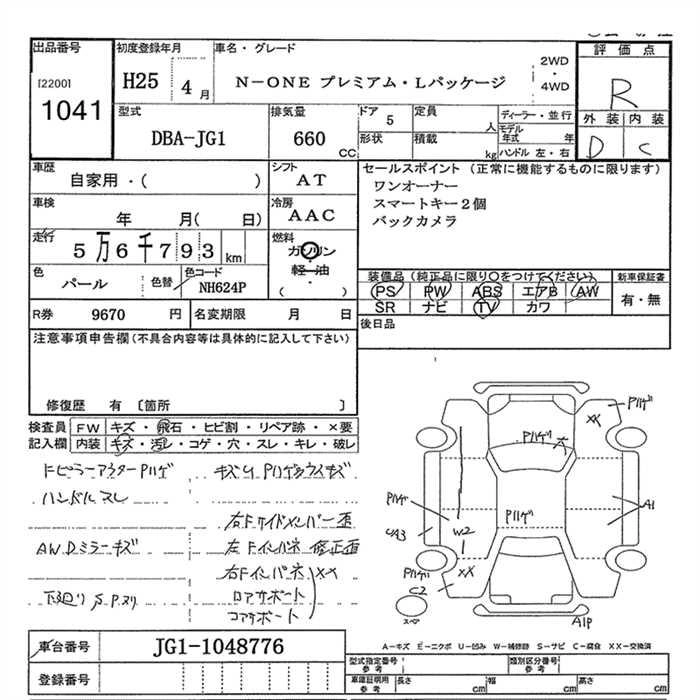 出品番号
[2200]
1041
初度登録年月
H25 4月
車名・グレード
N-ONE プレミアム・Lパッケージ
2WD
・
4WD
評価点
R
外装 内装
D C
型式
DBA-JG1
排気量
660
cc
ドア
5
形状
定員
人
積載
kg
ディーラー・並行
モデル年式 年
ハンドル 左・右
車歴
自家用・( )
シフト
AT
車検
年 月( 日)
冷房
AAC
走行
5万6千793km
燃料
ガソリン
・
軽油
・
( )
色
パール
色替
色コード
NH624P
R券 9670 円
名変期限 月 日
セールスポイント (正常に機能するものに限ります)
ワンオーナー
スマートキー2個
バックカメラ
装備品(純正品に限り○をつけてください)
PS PW ABS エアB AW
SR ナビ TV カワ
新車保証書
有・無
後日品
注意事項申告欄(不具合内容等は具体的に記入して下さい)
修復歴 有 〔箇所 〕
検査員記入欄
FW キズ・飛石・ヒビ割・リペア跡・×要
内装 キズ・汚レ・コゲ・穴・スレ・キレ・破レ
ハンドルスレ
右Fサイドメンバー歪
AW.Dミラーキズ
左Fインパネ 修正歪
右Fインパネ XX
下廻りS.Pスリ
ロアサポート
コアサポート
Pハゲ
XX
Pハゲ
大
Pハゲ
Pハゲ
A1
W2
Pハゲ
XX
C2
スペア
A1P
A-キズ E-エクボ U-凹み W-補修跡 S-サビ C-腐食 XX-交換済
車台番号 JG1-1048776
登録番号
型式指定番号
参考
類別区分番号
参考
車庫証明用
参考
長さ cm 幅 cm 高さ cm